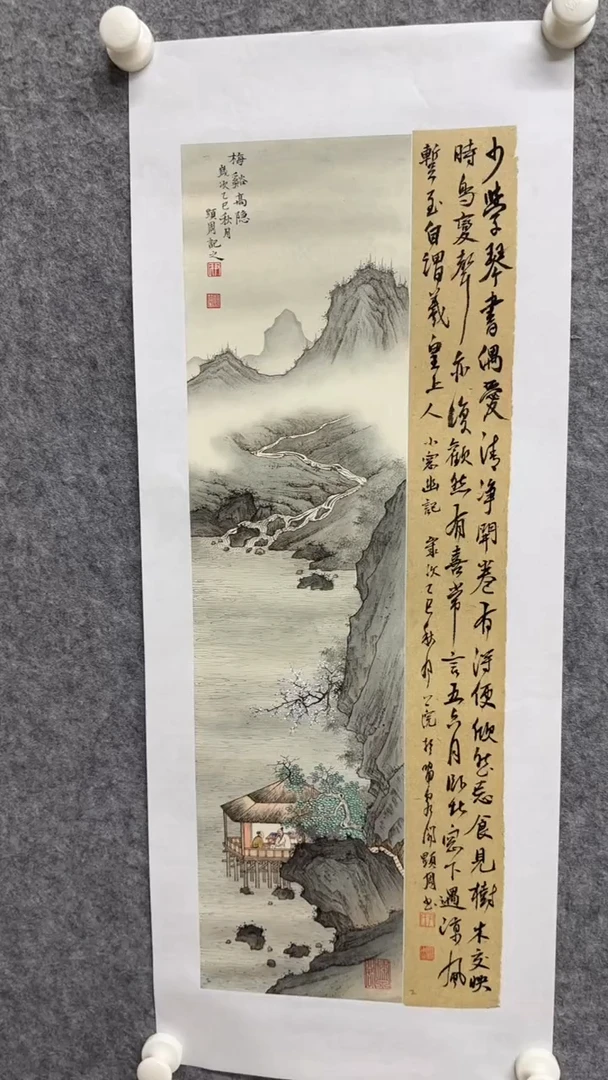 少学琴書偶愛清净開卷有得便欣然忘食見樹木交映
時鳥變聲亦復歡然有喜常言五六月卧北窓下遇凉風
暫至自謂羲皇上人 小窓幽記 歲次乙巳秋月 顕周书
梅谿高隐
歲次乙巳秋月
顕周記之